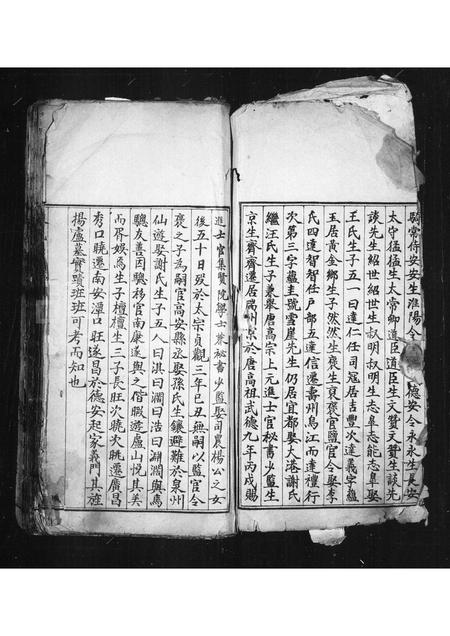 騎常侍安安生淮陽令 德安令永永生長安
太守猛猛生太常卿道臣道臣生文贊文贊生談先
談先生紹世紹世生叔明叔明生志皐志能志皐娶
王氏生子五一曰達仁任司冦居吉豐次達義字蘊
玉居黄金鄉生子然然生褒生裒褒官鹽官令娶李
氏四達智智任户部五達信遷壽州烏江而達禮行
次第三字蘊圭號雪崖先生仍居宜都娶大港謝氏
繼汪氏生子兼舉唐高宗上元進士官秘書少監生
京生齊齊遷居瑞州京於唐高祖武德九年丙戌賜
進士官集賢院學士兼秘書少監娶司農楊公之女
後五十日歿於太宗貞觀三年己丑無嗣以監官令
褒之子為嗣官高安縣丞娶孫氏生鑲避難於泉州
仙遊娶謝氏生子五人曰淇曰濶曰浩曰淵濶與馮
驄友善因驄移官南康遂與之偕暇遊廬山悦其美
而胥娛焉生子檀檀生三子長旺次曉次眺遷廣昌
秀口曉遷南安潭口旺遂昌於德安起家義門其旌
揚廬墓實蹟班班可考而知也